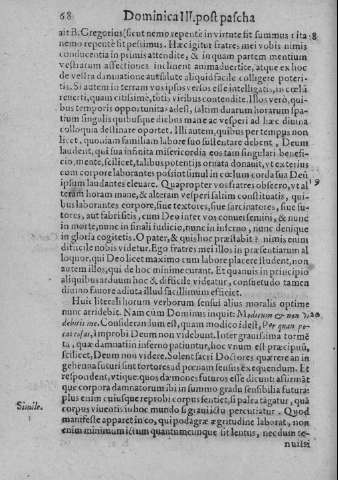 68 Dominica III. post pascha
ait B. Gregorius, sicut nemo repentè in virtute fit summus: ita 8
nemo repentè fit pessimus. Hæc igitur fratres mei vobis nimis
conducentia in primis attendite, & in quam partem mentium
vestrarum affectiones inclinent animadvertite, atque ex hoc
de vestra damnatione aut salute aliquid facile colligere poteri-
tis. Si autem in terram vos ipsos versos esse intelligatis, in cœlū
reverti, quam citissimè, totis viribus contendite. Illos verò, qui-
bus temporis opportunitas adest, saltim duarum horarum spa-
tium singulis quibusque diebus mane ac vesperi ad hæc divina
colloquia destinare oportet. Illi autem, quibus per tempus non
licet, quoniam familiam labore suo sustentare debent, Deum
laudent, qui sua infinita misericordia eos tam singulari benefi-
cio, mente, scilicet, talibus potentijs ornata donavit, vt exterius
cum corpore laborantes possint simul in cœlum corda sua Deū
ipsum laudantes elevare. Quapropter vos fratres obsecro, vt al 19
teram horam mane, & alteram vesperi saltim constituatis, qui-
bus laborantes corpore, sive textores, sive sarcinatores, sive su-
tores, aut fabri sitis, cum Deo inter vos converseminı, & nunc
in morte, nunc in finali iudicio, nunc in inferno, nunc denique
in gloria cogitetis. O pater, & quis hoc præstabit? nimis enim
difficile nobis videtur. Ego fratres mei illos in præsentiarum al
loquor, qui Deo licet maximo cum labore placere student, non
autem illos, qui de hoc minimè curant. Et quamvis in principio
aliquibus arduum hoc & difficile videatur, consuetudo tamen
divino favore adiuta illud facillimum efficiet.
Huic literali horum verborum sensui alius moralis optime
nunc arridebit. Nam cùm Dominus inquit: Modicum & non vi 20
debitis me. Considerandum est, quam modico idest, Per quam pec-
catorum, improbi Deum non videbunt. Inter gravissima tormē
ta, quæ damnati in inferno patiuntur, hoc vnum est præcipuū,
scilicet, Deum non videre. Solent sacri Doctores quærere an in
gehenna futuri sint tortores ad pœnam sensus exequendam. Et
respondent, vtique: quos dæmones futuros esse dicunt: assirmāt
que corpora damnatorum ibi in summo gradu sensibilia futura:
plus enim cuiusque reprobi corpus sentiet, si palea tāgatur, quà
Simile. corpus viventis in hoc mundo si gravi ictu percutiatur. Quod
manifeste apparet in eo, qui podagræ ægritudine laborat, non
enim minimum ictum quantumcunque sit lentus, nec dum te-
nuissi